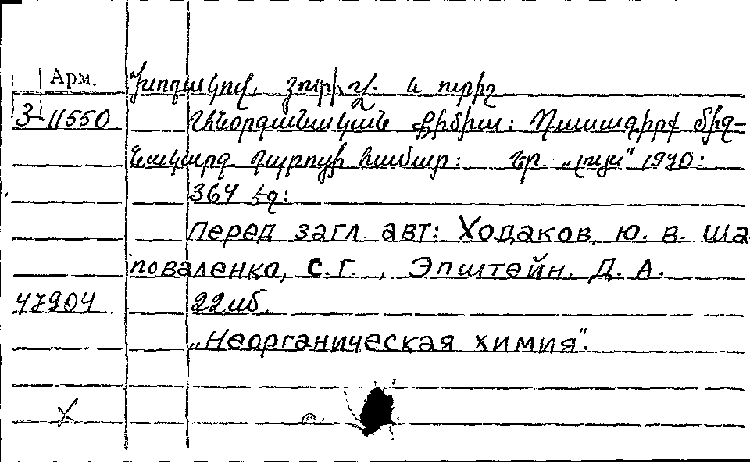 Арм. Խոդակով, Յուրի Վ. և ուրիշ
3-11550 Անօրգանական քիմիա: Դասագիրք միջ-
նակարգ դպրոցի համար: Եր. „Լույս" 1970:
364 էջ:
Перед загл. авт: Ходаков, Ю. В. Ша
поваленко, С. Г. , Эпштейн. Д. А.
47904 22 մб.
„Неорганическая химия".